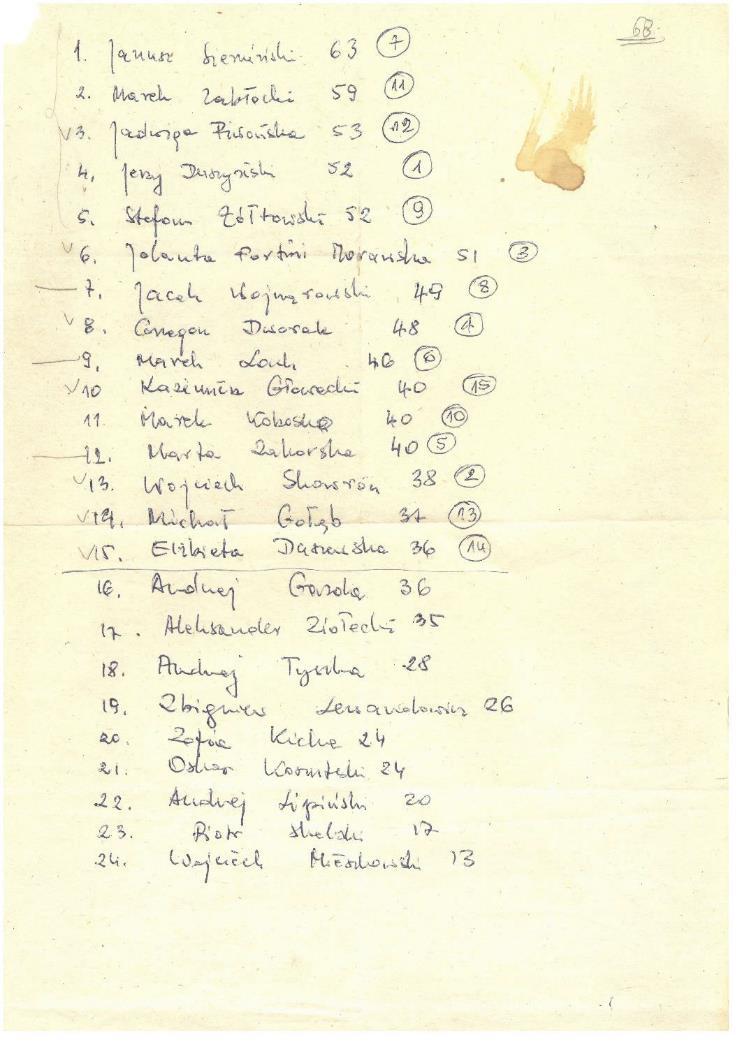 68.
1. Janusz 63 7
2. Marek Zabłocki 59 11
v3. Jadwiga 53 12
4. Jerzy Duszyński 52 1
5. Stefan Żółtowski 52 9
v 6. Jolanta Morawska 51 3
7. Jacek 49 8
v 8. Czesgon Dworak 48 4
9. Marek 46 6
v10 Kazimierz Głowacki 40 15
11. Marek 40 10
12. Marta Zakorska 40 5
v13. Wojciech Skowron 38 2
v14. Michał Gołąb 37 13
v15. Elżbieta 36 14
16. Andrzej Gazda 36
17. Aleksander Ziołecki 35
18. Andrzej Tyszka 28
19. Zbigniew Lewandowicz 26
20. Zofia Kicha 24
21. Oskar 24
22. Andrzej Lipiński 20
23. Piotr Skelski 17
24. Wojciech Mieszkowski 13